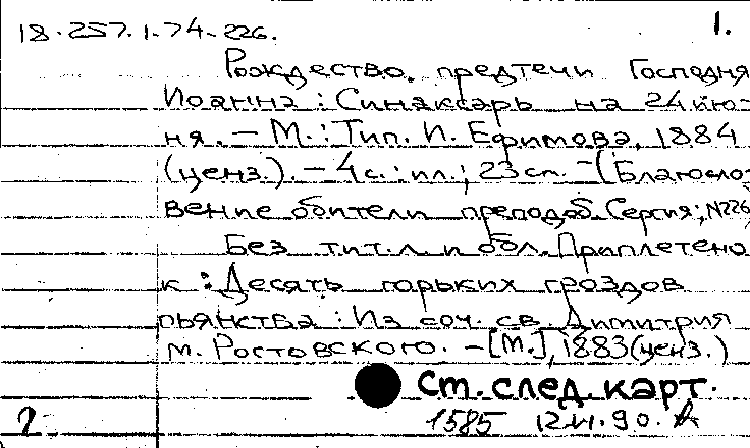 18.257.1-74-226.
1.
Рождество предтечи Господня
Иоанна : Синаксарь на 24 ию-
ня. – М. : Тип. И. Ефимова, 1884
(ценз.). – 4 с. : ил.; 23 см. – (Благосло-
вение обители преподоб. Сергия; N226)
Без тит. л. и обл. Приплетено
к : Десять горьких гроздов
пьянства : Из соч. св. Димитрия
м. Ростовского. – [М.], 1883 (ценз.)
См. след. карт.
2. 1585